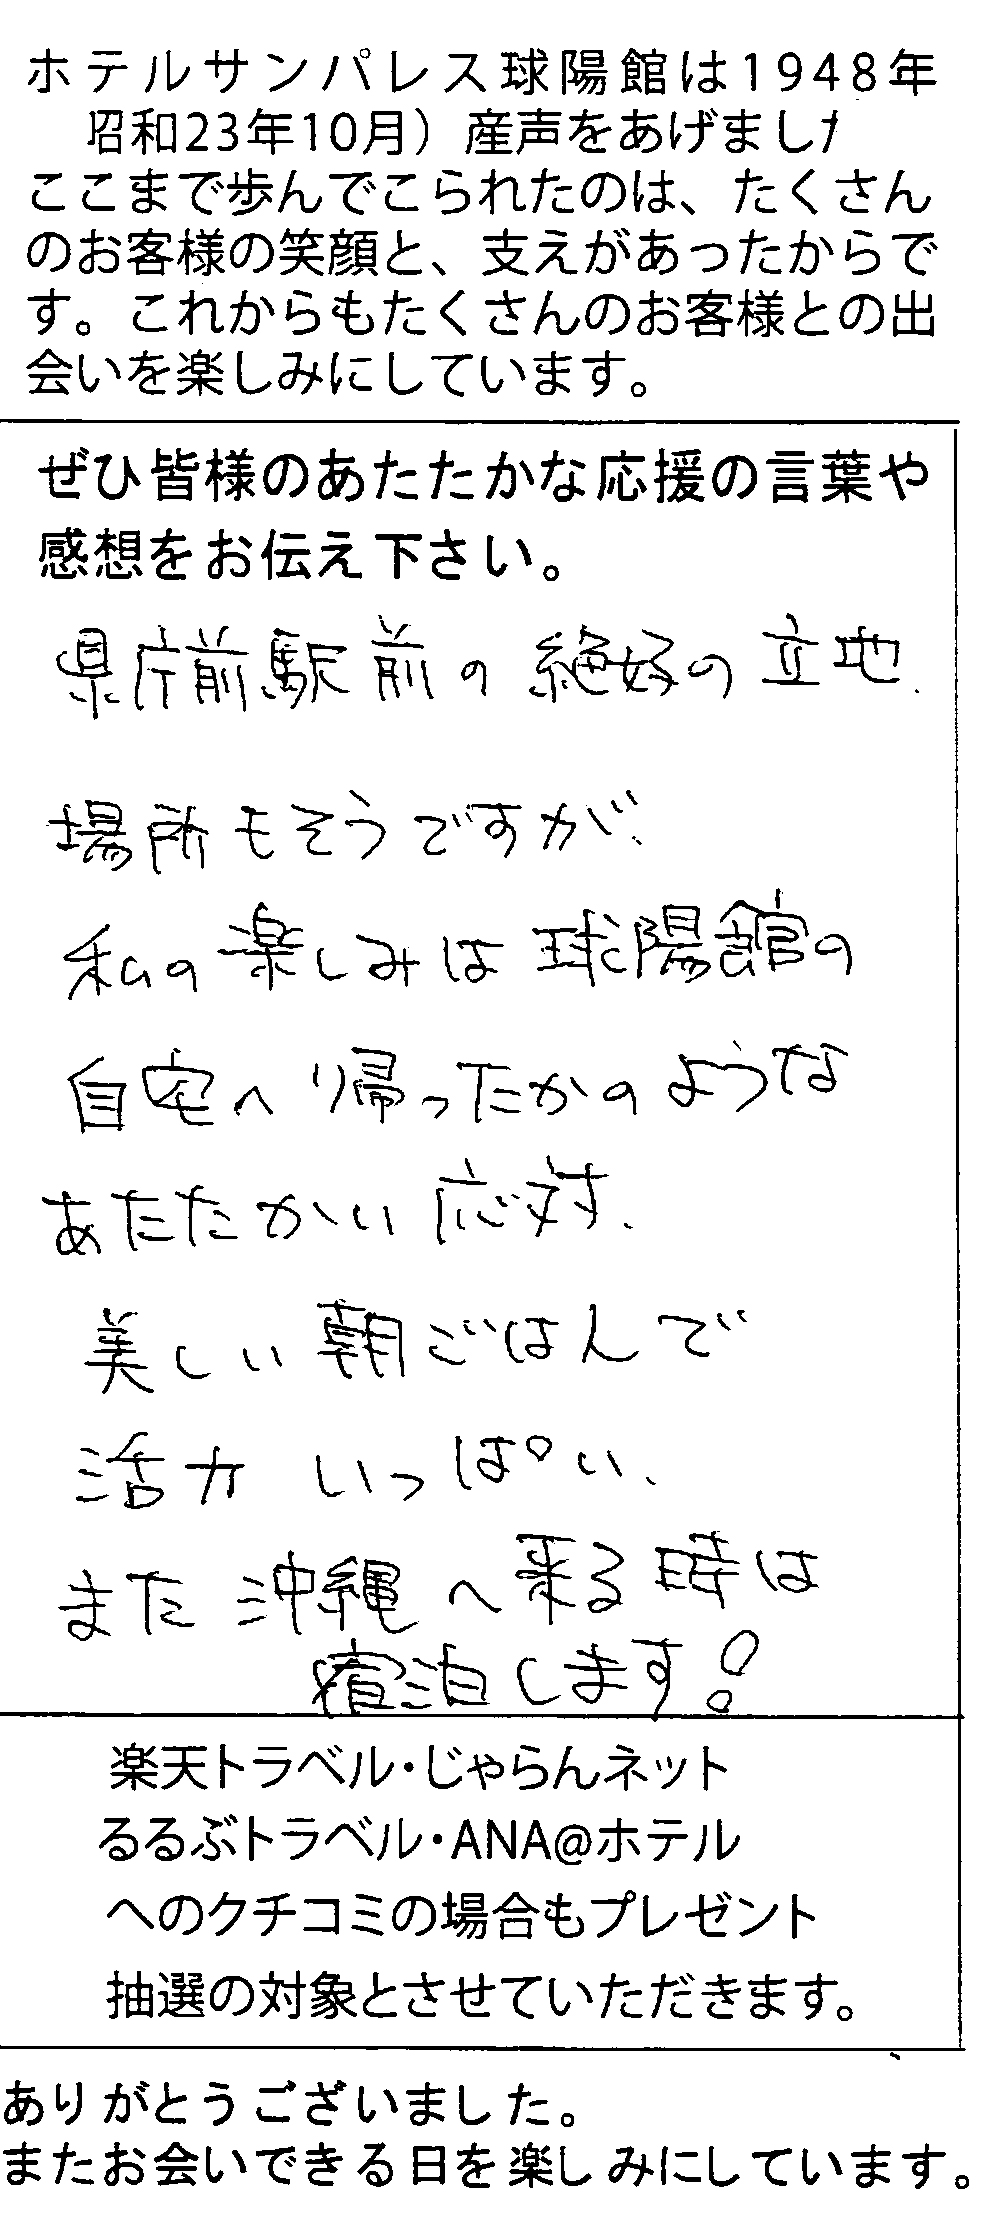 ホテルサンパレス球陽館は1948年
昭和23年10月）産声をあげました
ここまで歩んでこられたのは、たくさん
のお客様の笑顔と、支えがあったからで
す。これからもたくさんのお客様との出
会いを楽しみにしています。
ぜひ皆様のあたたかな応援の言葉や
感想をお伝え下さい。
県庁前駅前の絶好の立地、
場所もそうですが、
私の楽しみは球陽館の
自宅へ帰ったかのような
あたたかい応対、
美しい朝ごはんで
活力いっぱい、
また沖縄へ来る時は
宿泊します！
楽天トラベル・じゃらんネット
るるぶトラベル・ANA@ホテル
へのクチコミの場合もプレゼント
抽選の対象とさせていただきます。
ありがとうございました。
またお会いできる日を楽しみにしています。